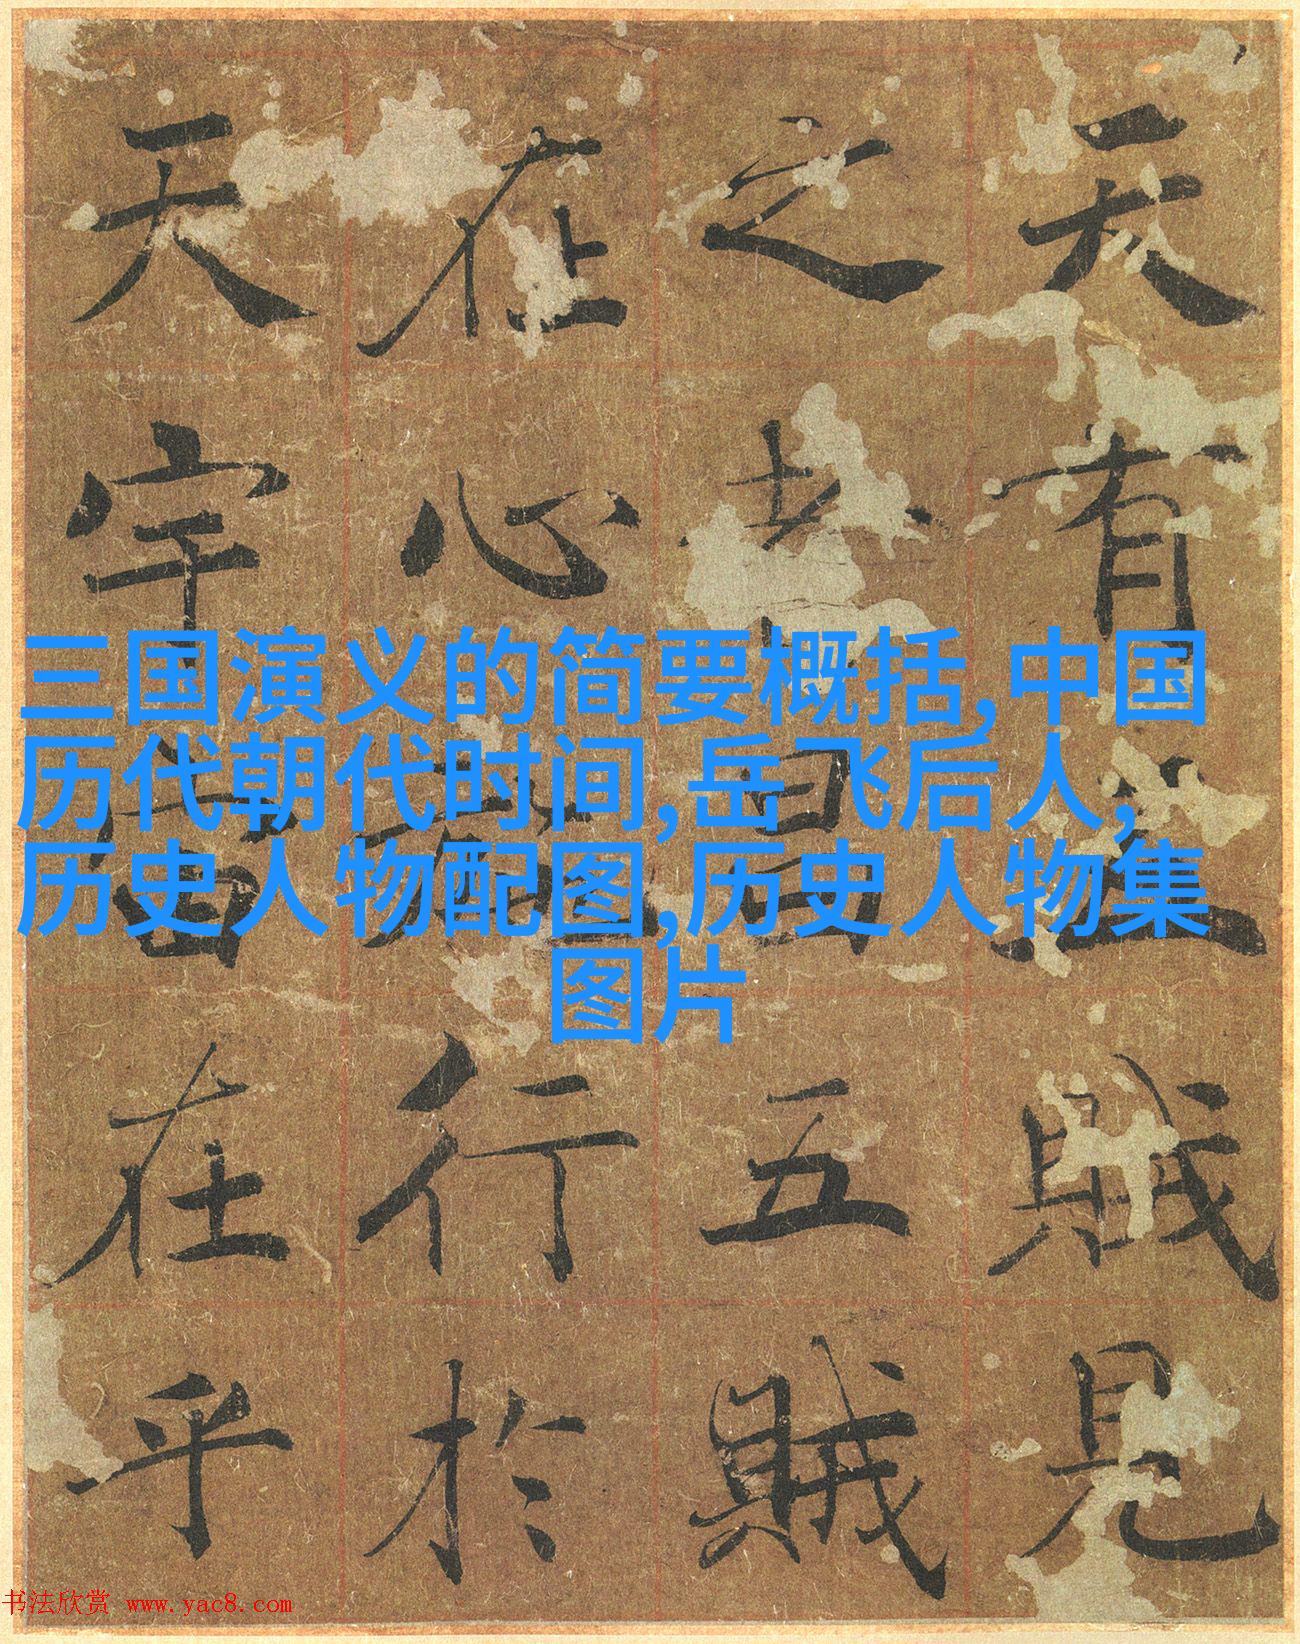 天有五賊見
之者昌五賊
在心行於
天宇宙在乎
三国演义的简要概括,中国
历代朝代时间,岳飞后人,
历史人物配图,历史人物集
图片
书法欣赏 www.yac8.com